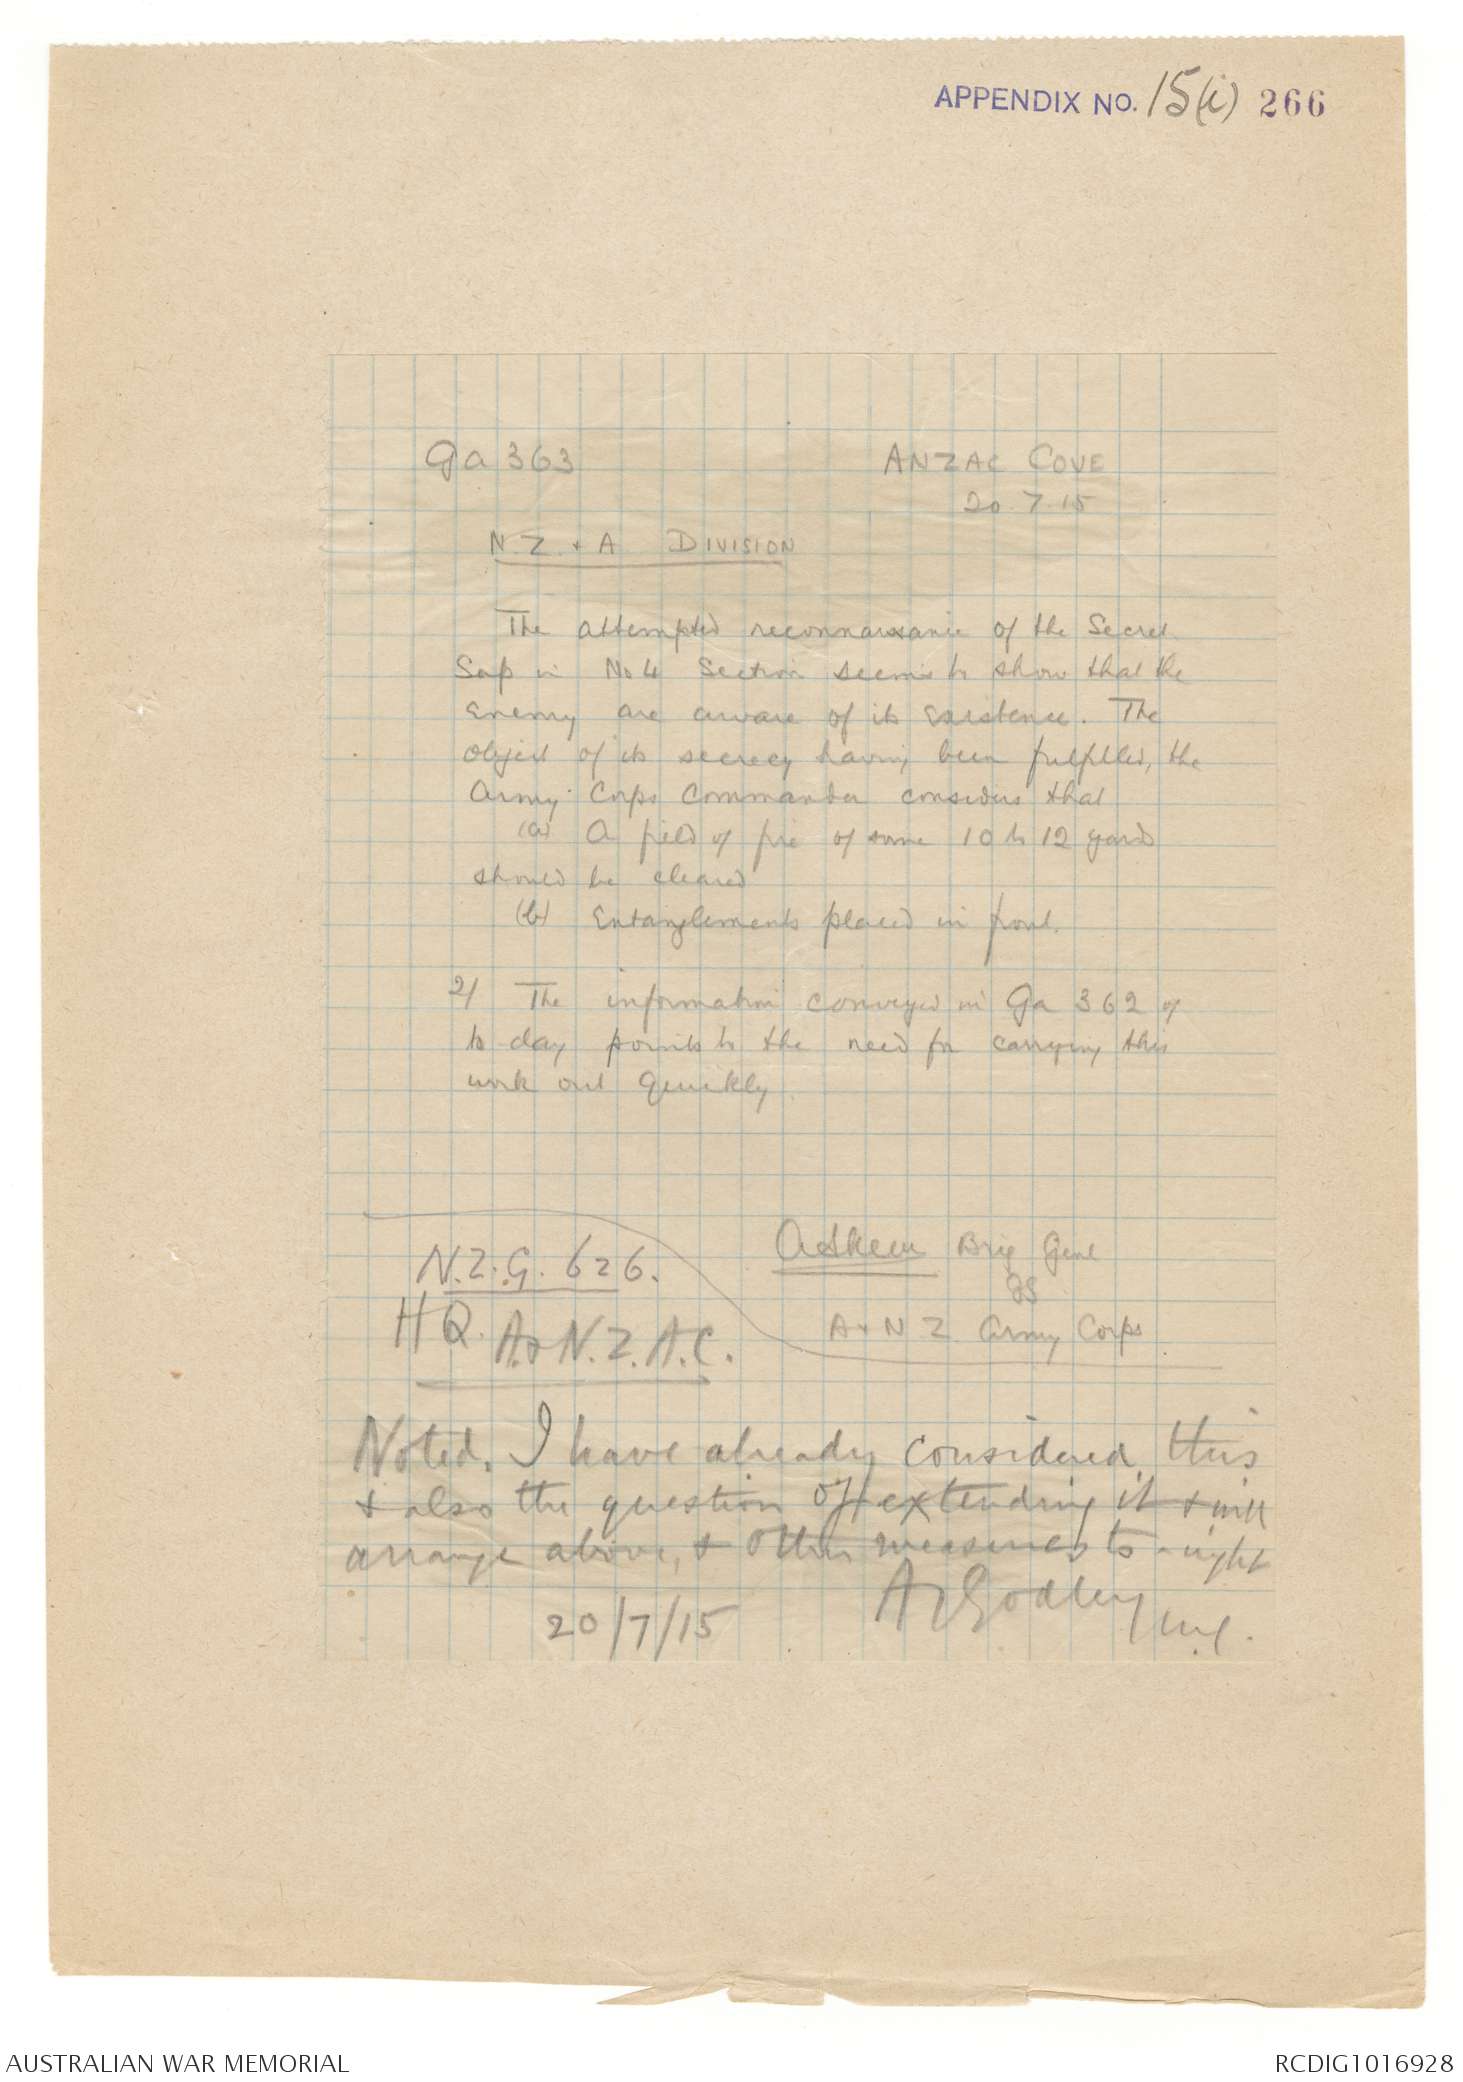 APPENDIX NO. 15(i) 266
Ga 363 ANZAC COVE
20.7.15
N.Z. + A DIVISION
The attempted reconnaissance of the Secret
Sap in No 4 Section seems to show that the
Enemy are aware of its existence. The
object of its secrecy having been fulfilled, the
Army Corps Commander considers that
(a) A field of fire of some 10 to 12 yards
should be cleared
(b) Entanglements placed in front.
2/ The information conveyed in Ga 362 of
to day points to the need for carrying this
work out quickly.
A Skeen Brig Genl
GS
A + N Z Army Corps.
N.Z.G. 626.
HQ. A. & N.Z.A.C.
Noted. I have already considered this
& also the question of extending it & will
arrange above, & other measures to-night
20/7/15 A J Godley
AUSTRALIAN WAR MEMORIAL RCDIG1016928